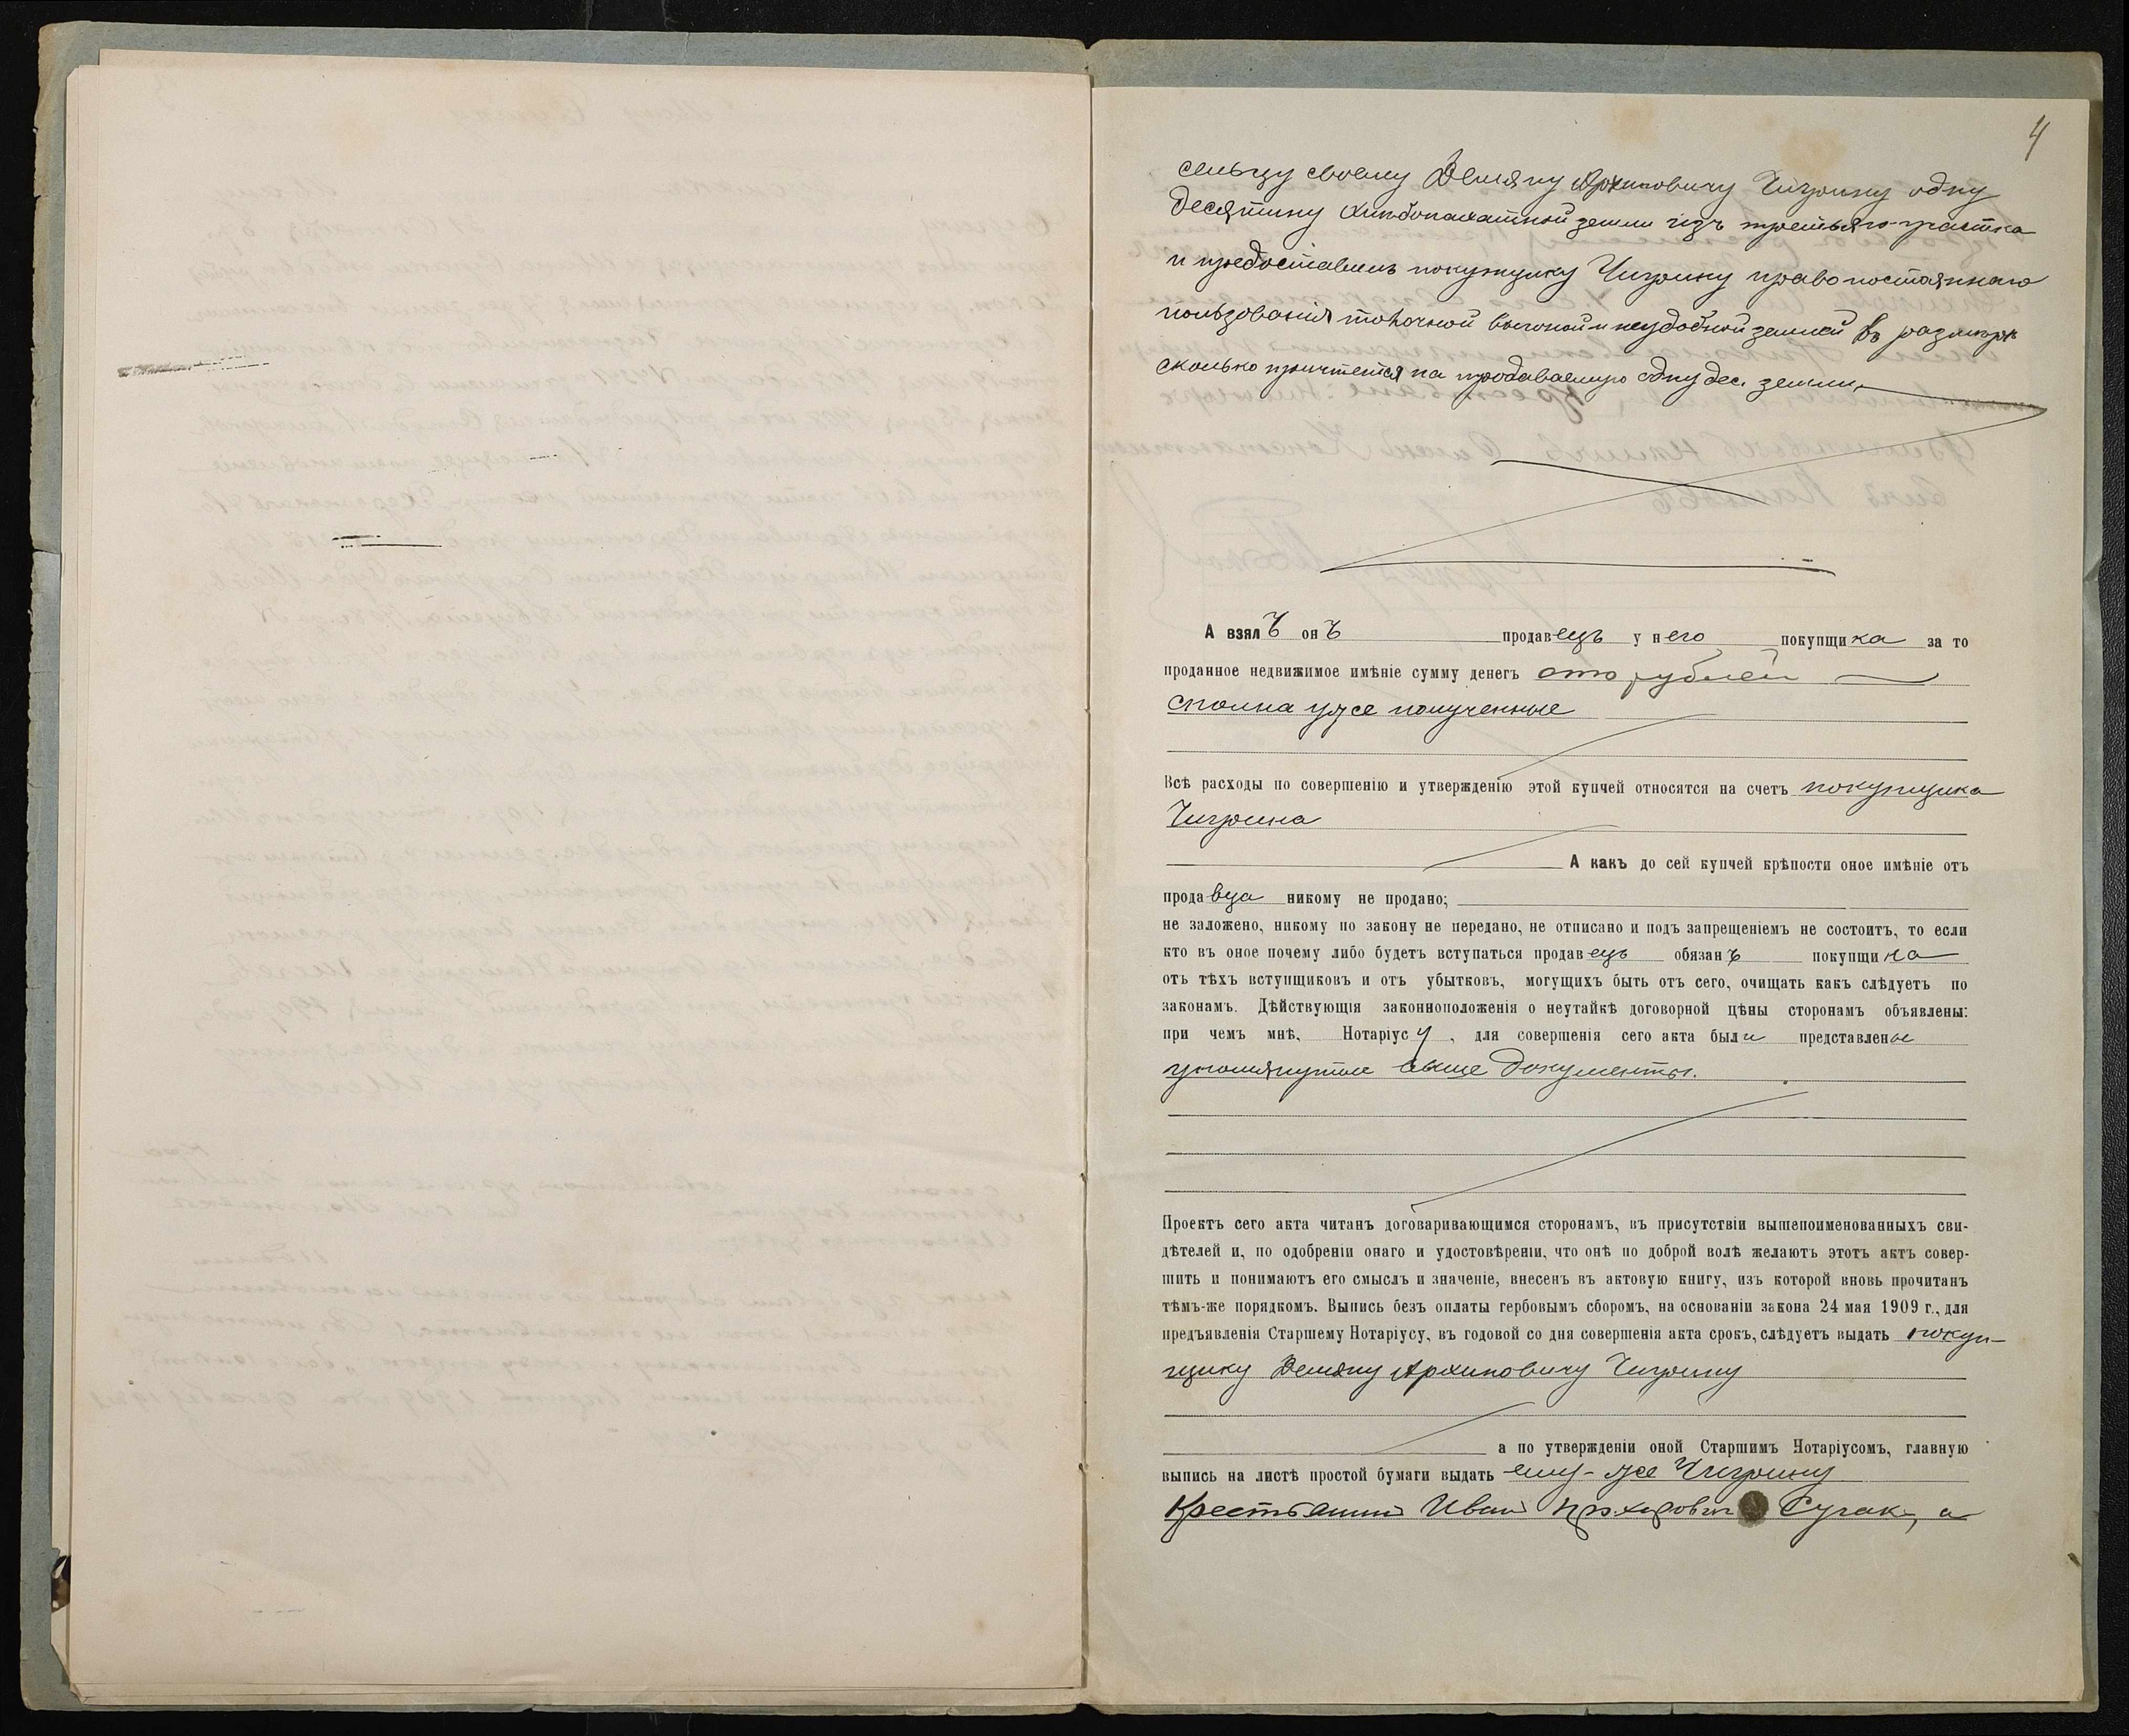 4
сельцу своему Демяну Архиповичу Чигрину одну
десятину хлѣбопахатной земли изъ третьяго участка
и предоставилъ покупщику Чигрину право постояннаго
пользованія толочной выгонной и неудобной землей въ размѣрѣ
сколько причтется на продаваемую одну дес. земли,
А взялъ онъ продавецъ у него покупщика за то
проданное недвижимое имѣніе сумму денегъ сто рублей
сполна уже полученные
Всѣ расходы по совершенію и утвержденію этой купчей относятся на счетъ покупщика
Чигрина
А какъ до сей купчей крѣпости оное имѣніе отъ
продавца никому не продано;
не заложено, никому по закону не передано, не отписано и подъ запрещеніемъ не состоитъ, то если
кто въ оное почему либо будетъ вступаться продавецъ обязанъ покупщика
отъ тѣхъ вступщиковъ и отъ убытковъ, могущихъ быть отъ сего, очищать какъ слѣдуетъ по
законамъ. Дѣйствующія законноположенія о неутайкѣ договорной цѣны сторонамъ объявлены:
при чемъ мнѣ, Нотаріусу, для совершенія сего акта были представлены
упомянутые выше документы.
Проектъ сего акта читанъ договаривающимся сторонамъ, въ присутствіи вышепоименованныхъ сви-
дѣтелей и, по одобреніи онаго и удостовѣреніи, что онѣ по доброй волѣ желаютъ этотъ актъ совер-
шить и понимаютъ его смыслъ и значеніе, внесенъ въ актовую книгу, изъ которой вновь прочитанъ
тѣмъ-же порядкомъ. Выпись безъ оплаты гербовымъ сборомъ, на основаніи закона 24 мая 1909 г., для
предъявленія Старшему Нотаріусу, въ годовой со дня совершенія акта срокъ, слѣдуетъ выдать покуп-
щику Демяну Архиповичу Чигрину
а по утвержденіи оной Старшимъ Нотаріусомъ, главную
выпись на листѣ простой бумаги выдать ему-же Чигрину
Крестьянин Иван Прохорович Сугак, а